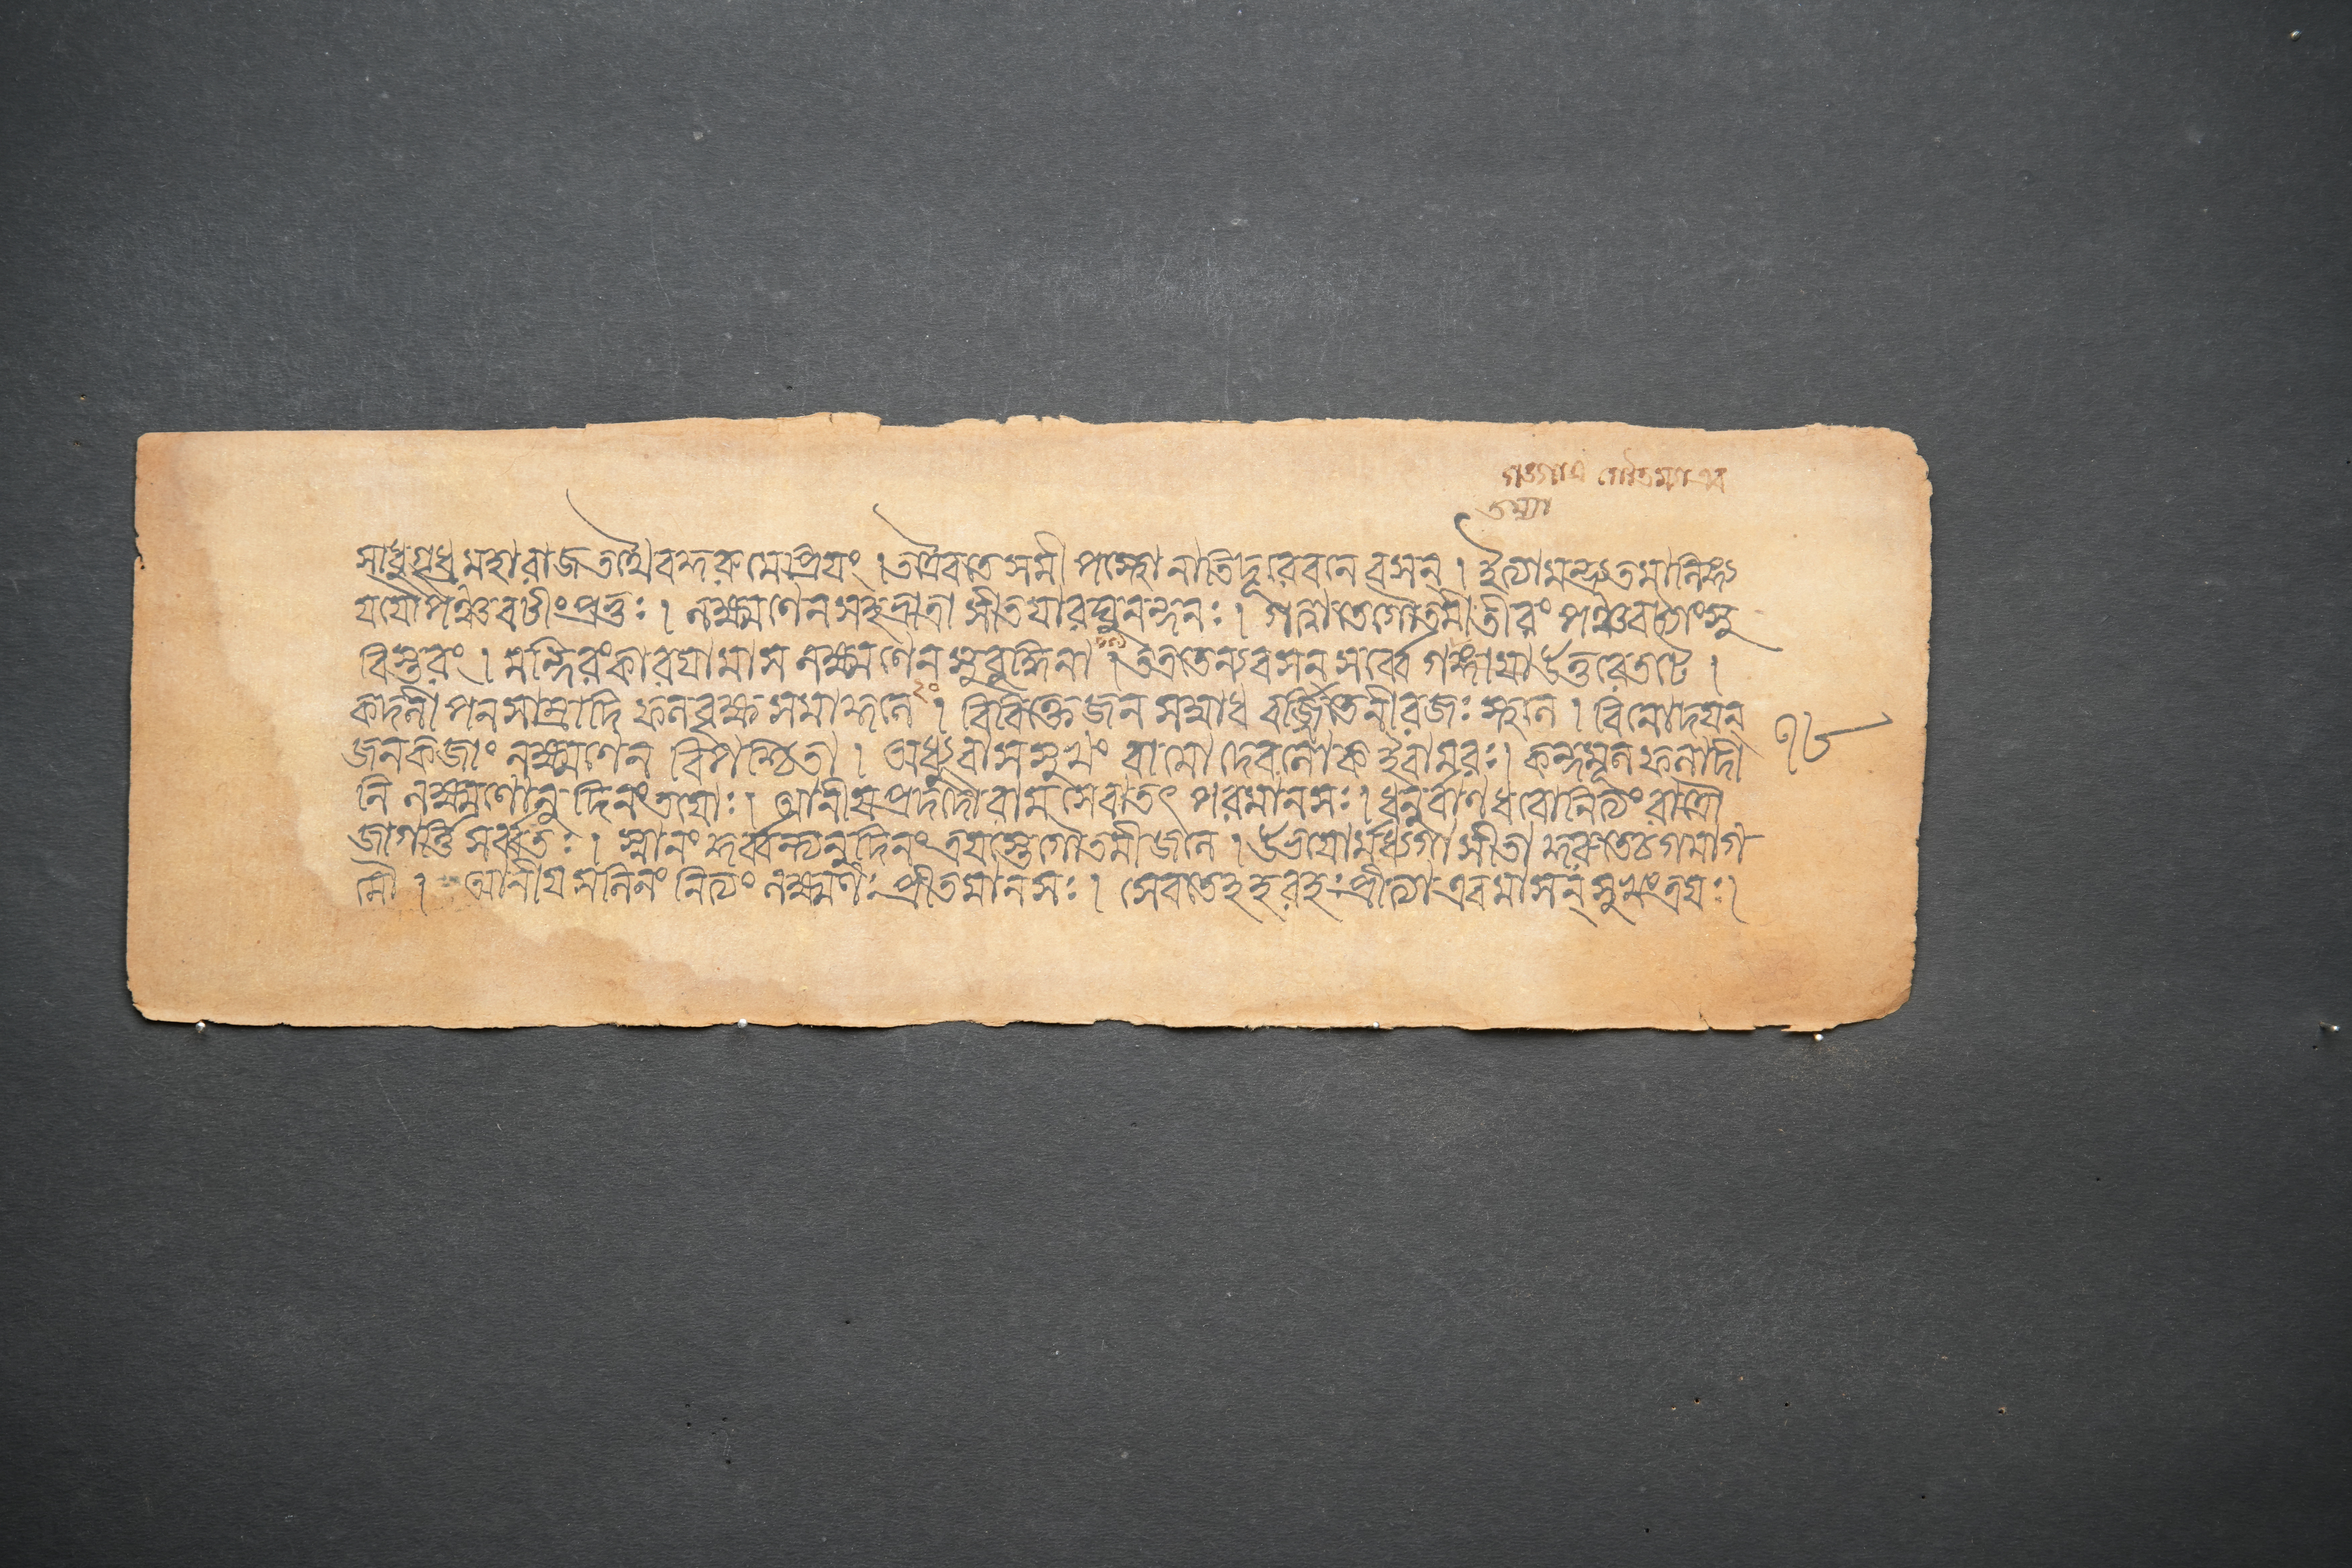 গঙ্গায়া গৌতম্যা এব
তস্যা
সাধু গৃধ্র মহারাজ তথৈব কুরু মে প্রিয়ং । অত্রৈব তে সমীপস্থো নাতিদূরে বনে বসন্ । ইত্যামন্ত্র্য তমালিঙ্গ্য
যযৌ পঞ্চবটীং প্রভুঃ । লক্ষ্মণেন সহ ভ্রাত্রা সীতয়া রঘুনন্দনঃ । গত্বা তে গৌতমীতীরং পঞ্চবট্যাং সু
বিস্তরং । মন্দিরং কারয়ামাস লক্ষ্মণেন সুবুদ্ধিনা । তত্র তে ন্যবসন্ সর্ব্বে গঙ্গায়া উত্তরে তটে ।
কদলী পনসাম্রাদি ফলবৃক্ষ সমাকুলে । বিবিক্তে জন সম্বাধ বর্জ্জিতে নীরজঃ স্থলে । বিনোদয়ন্
জনকজাং লক্ষ্মণেন বিপশ্চিতা । অধ্যুবাস সুখং রামো দেবলোক ইবামরঃ । কন্দমূল ফলাদী
নি লক্ষ্মণোনুদিনং তয়োঃ । আনীয় প্রদদৌ রাম সেবাতৎ পরমানসঃ । ধনুর্বাণ ধরো নিত্যং রাত্রৌ
জাগর্ত্তি সর্ব্বতঃ । স্নানং কুর্ব্বন্ত্যনুদিনং ত্রয়স্তে গৌতমীজলে । উভয়োর্মধ্যগা সীতা কুরুতে চ গমাগ
মৌ । আনীয় সলিলং নিত্যং লক্ষ্মণঃ প্রীতমানসঃ । সেবতে হহরহঃ প্রীত্যা এবমাসন্ সুখং ত্রয়ঃ ।
১৮